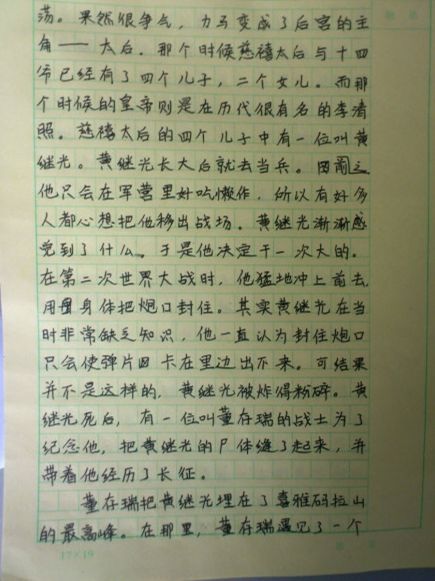 荡。果然很争气，力马变成了后宫的主
角——太后。那个时候慈禧太后与十四
爷已经有了四个儿子，二个女儿。而那
个时候的皇帝则是在历代很有名的李清
照。慈禧太后的四个儿子中有一位叫黄
继光。黄继光长大后就去当兵。因而
他只会在军营里好吃懒作，所以有好多
人都心想把他移出战场。黄继光渐渐感
觉到了什么。于是他决定干一次大的。
在第二次世界大战时，他猛地冲上前去
用身体把炮口封住。其实黄继光在当
时非常缺乏知识，他一直认为封住炮口
只会使弹片卡在里边出不来。可结果
并不是这样的，黄继光被炸得粉碎。黄
继光死后，有一位叫董存瑞的战士为了
纪念他，把黄继光的尸体缝了起来，并
带着他经历了长征。
董存瑞把黄继光埋在了喜雅码拉山
的最高峰。在那里，董存瑞遇见了一个
17×19